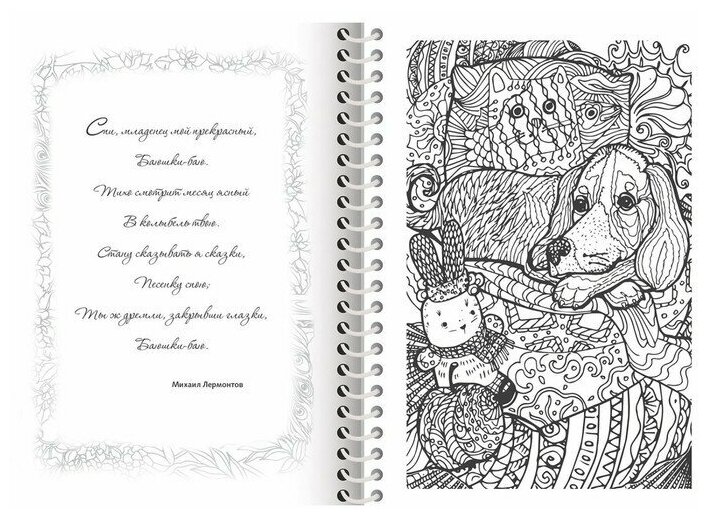 Спи, младенец мой прекрасный,
Баюшки-баю.
Тихо смотрит месяц ясный
В колыбель твою.
Стану сказывать я сказки,
Песенку спою;
Ты ж дремли, закрывши глазки,
Баюшки-баю.
Михаил Лермонтов